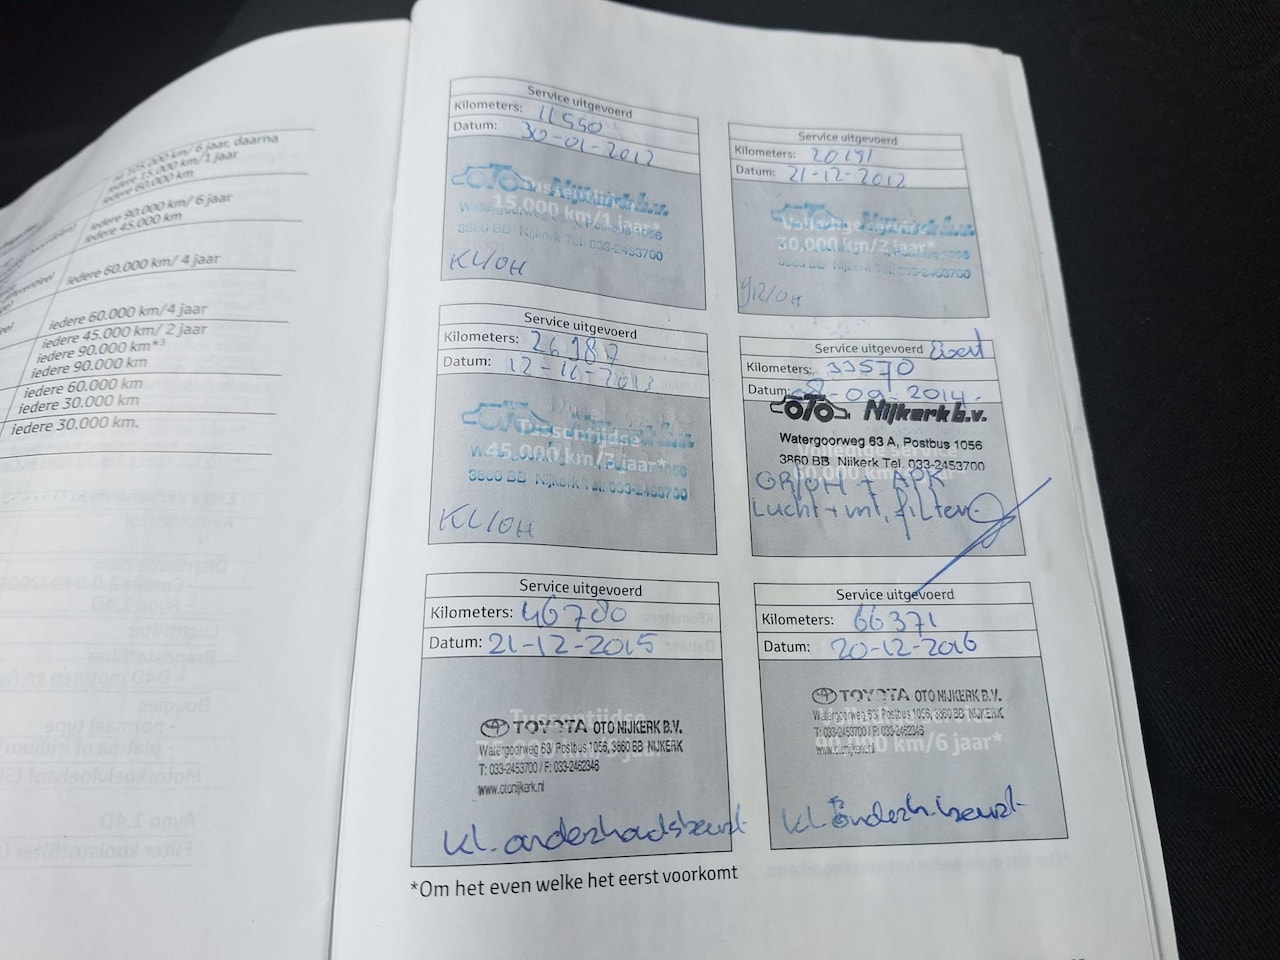 na 105.000 km/ 6 jaar, daarna
iedere 15.000 km/1 jaar
iedere 60.000 km
iedere 90.000 km/ 6 jaar
iedere 45.000 km
iedere 60.000 km/ 4 jaar
iedere 60.000 km/4 jaar
iedere 45.000 km/ 2 jaar
iedere 90.000 km*³
iedere 90.000 km
iedere 60.000 km
iedere 30.000 km
iedere 30.000 km.
Service uitgevoerd
Kilometers: 11550
Datum: 30-01-2012
OTO Nijkerk b.v.
15,000 km/1 jaar*
Watergoorweg Postbus 1056
3860 BB Nijkerk Tel. 033-2453700
KL/OH
Service uitgevoerd
Kilometers: 20191
Datum: 21-12-2012
OTO Nijkerk b.v.
Volledige
30,000 km/2 jaar*
Postbus 1056
3860 BB Nijkerk Tel. 033-2453700
gR/OH
Service uitgevoerd
Kilometers: 26987
Datum: 12-2013
OTO
Tussentijdse
45,000 km/3 jaar*
3860 BB Nijkerk Tel. 033-2453700
KL/OH
Service uitgevoerd
Kilometers: 33570
Datum: -09-2014.
OTO Nijkerk b.v.
Watergoorweg 63 A, Postbus 1056
3860 BB Nijkerk Tel. 033-2453700
Volledige service
GR/OH + APK
Lucht + int. filter
Service uitgevoerd
Kilometers: 46780
Datum: 21-12-2015
Tussentijdse
TOYOTA OTO NIJKERK B.V.
Watergoorweg 63/ Postbus 1056, 3860 BB NIJKERK
T: 033-2453700 / F: 033-2462346
www.otonijkerk.nl
kl. onderhoudsbeurt
Service uitgevoerd
Kilometers: 66371
Datum: 20-12-2016
TOYOTA OTO NIJKERK B.V.
Watergoorweg 63/ Postbus 1056, 3860 BB NIJKERK
T: 033-2453700 / F: 033-2462346
www.otonijkerk.nl
90,000 km/6 jaar*
kl. onderh. beurt
*Om het even welke het eerst voorkomt